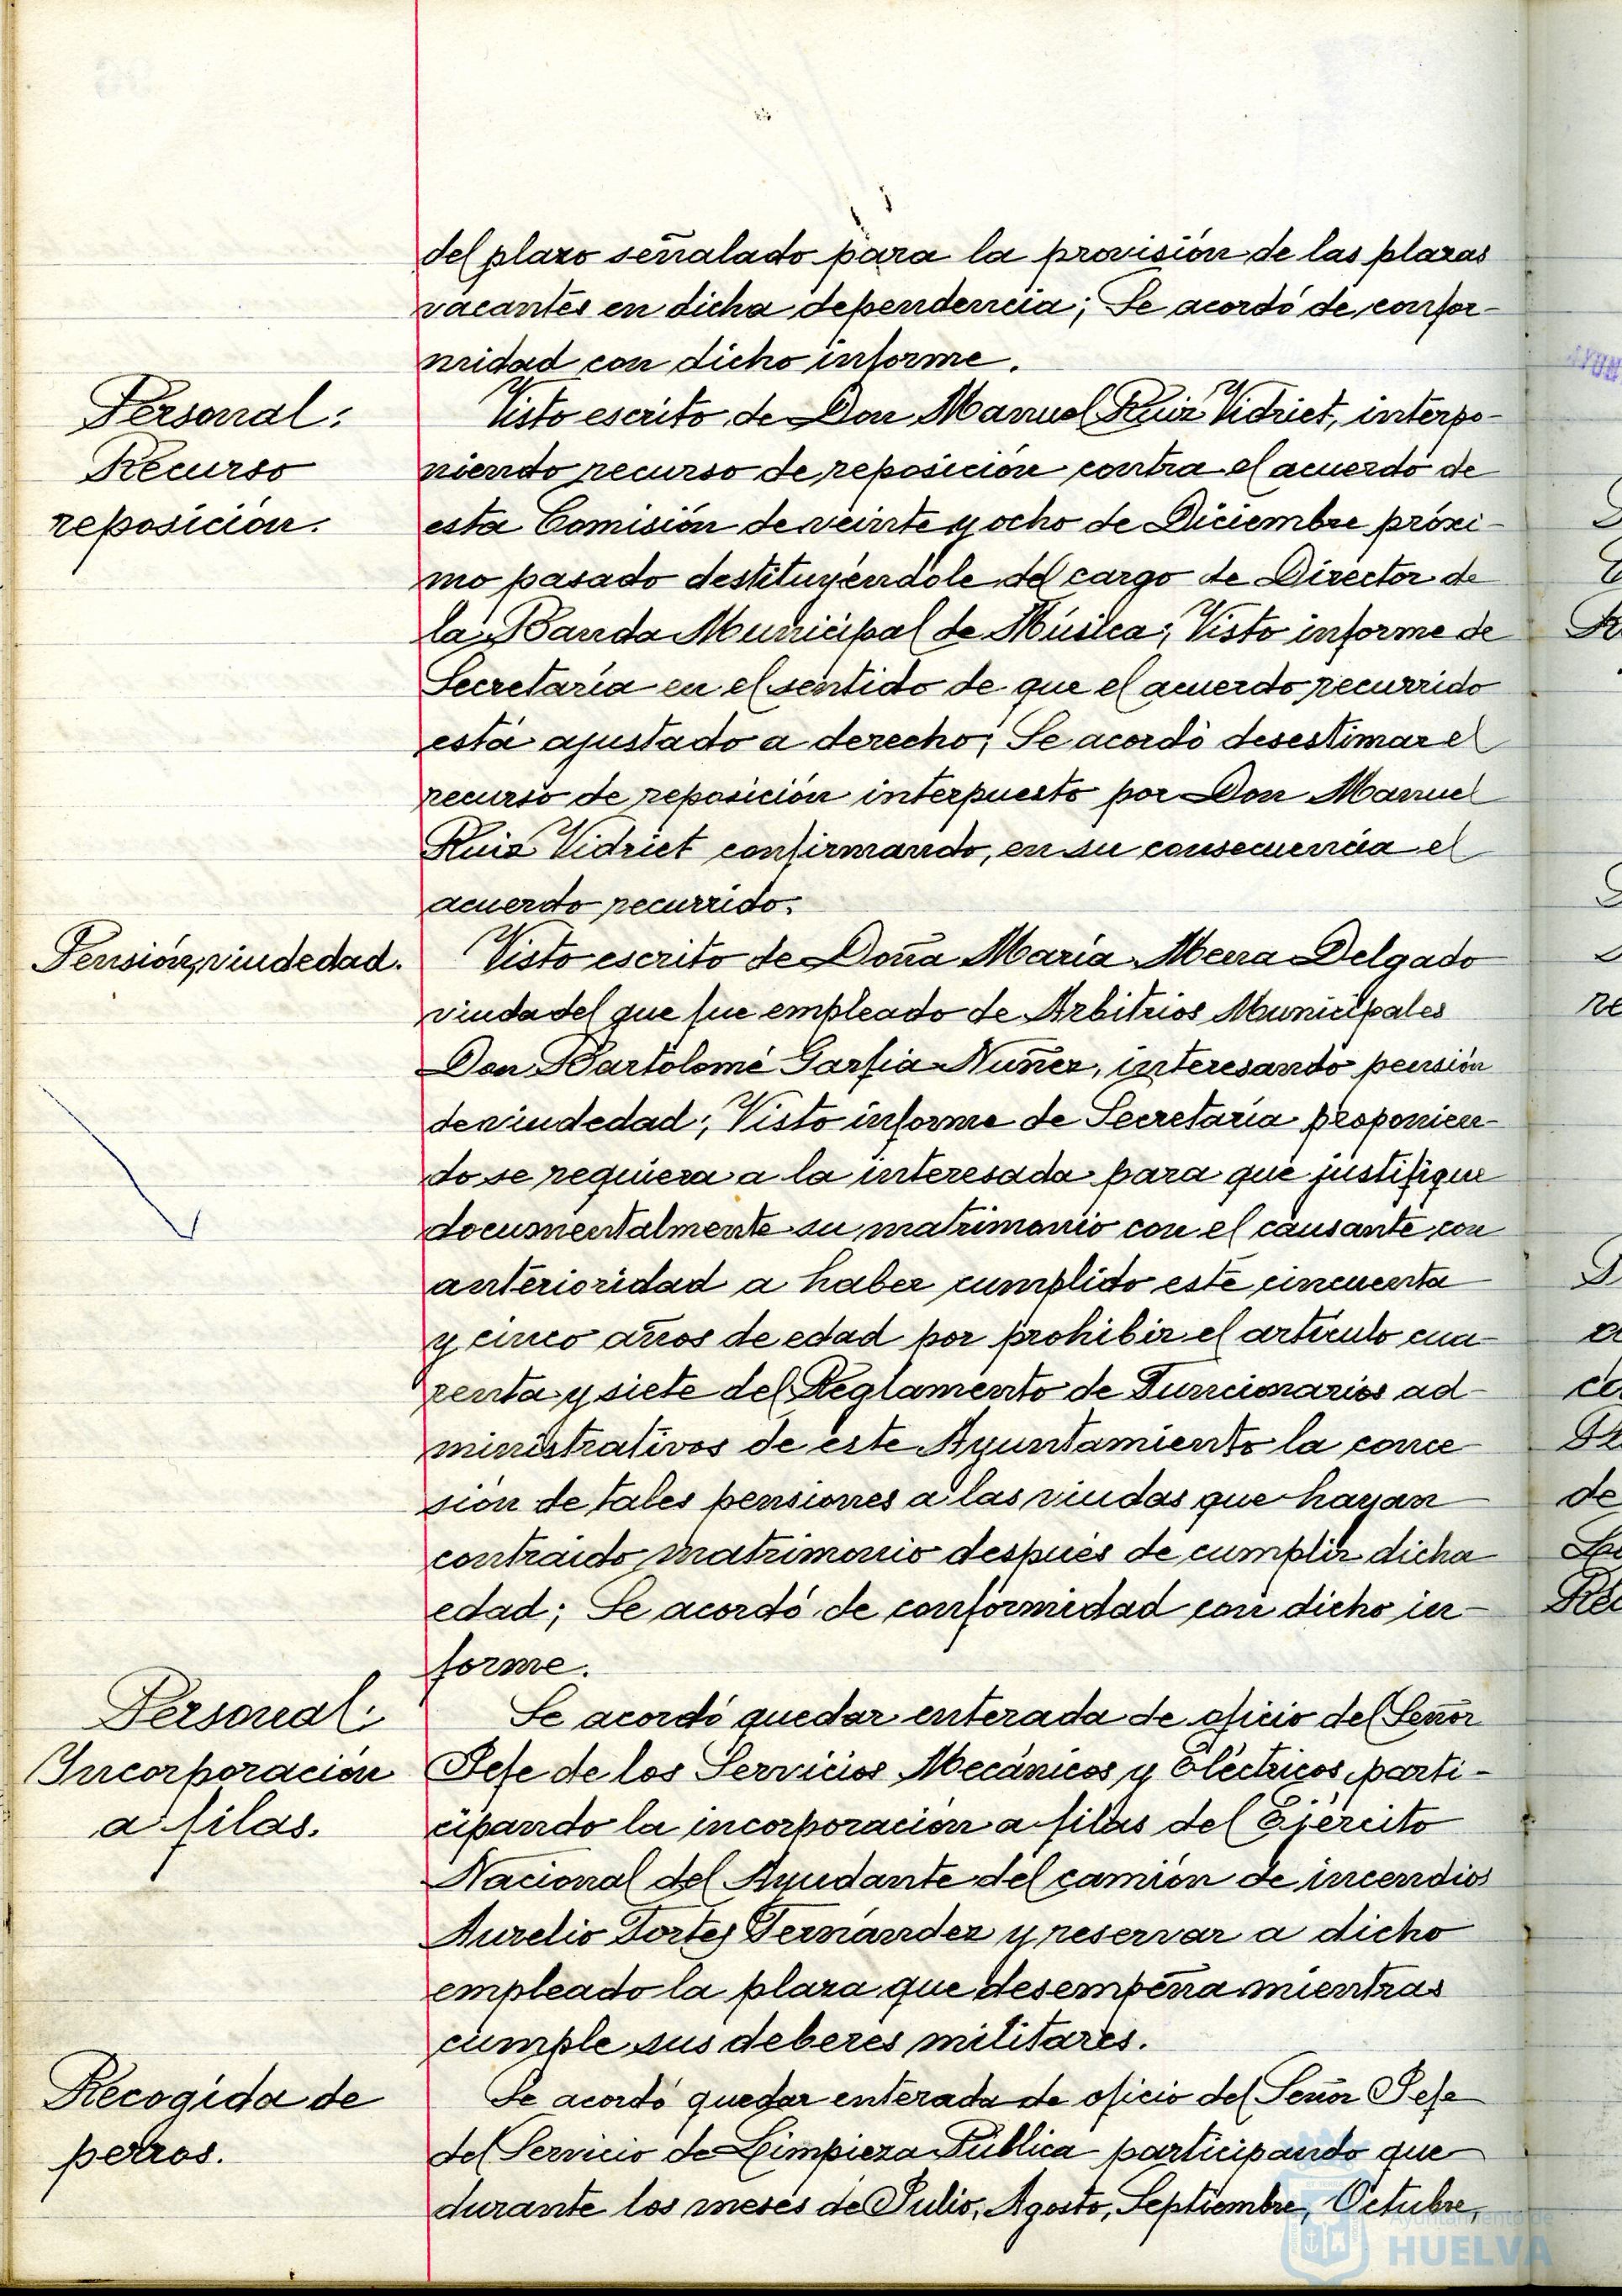 del plazo señalado para la provisión de las plazas
vacantes en dicha dependencia; Se acordó de confor-
midad con dicho informe.
Personal:
Recurso
reposición.
Visto escrito de Don Manuel Ruiz Vidriet, interpo-
niendo recurso de reposición contra el acuerdo de
esta Comisión de veinte y ocho de Diciembre próxi-
mo pasado destituyéndole del cargo de Director de
la Banda Municipal de Música; Visto informe de
Secretaría en el sentido de que el acuerdo recurrido
está ajustado a derecho; Se acordó desestimar el
recurso de reposición interpuesto por Don Manuel
Ruiz Vidriet confirmando, en su consecuencia el
acuerdo recurrido.
Pensión viudedad.
Visto escrito de Doña María Meera Delgado
viuda del que fue empleado de Arbitrios Municipales
Don Bartolomé Garfia Nuñez, interesando pensión
de viudedad; Visto informe de Secretaría proponien-
do se requiera a la interesada para que justifique
documentalmente su matrimonio con el causante con
anterioridad a haber cumplido este cincuenta
y cinco años de edad por prohibir el artículo cua-
renta y siete del Reglamento de Funcionarios ad-
ministrativos de este Ayuntamiento la conce
sión de tales pensiones a las viudas que hayan
contraido matrimonio después de cumplir dicha
edad; Se acordó de conformidad con dicho in-
forme.
Personal:
Incorporación
a filas.
Se acordó quedar enterada de oficio del Señor
Jefe de los Servicios Mecánicos y Eléctricos parti-
cipando la incorporación a filas del Ejército
Nacional del Ayudante del camión de incendios
Aurelio Fortes Fernández y reservar a dicho
empleado la plaza que desempeña mientras
cumple sus deberes militares.
Recogida de
perros.
Se acordó quedar enterada de oficio del Señor Jefe
del Servicio de Limpieza Pública participando que
durante los meses de Julio, Agosto, Septiembre, Octubre,
Ayuntamiento de
HUELVA